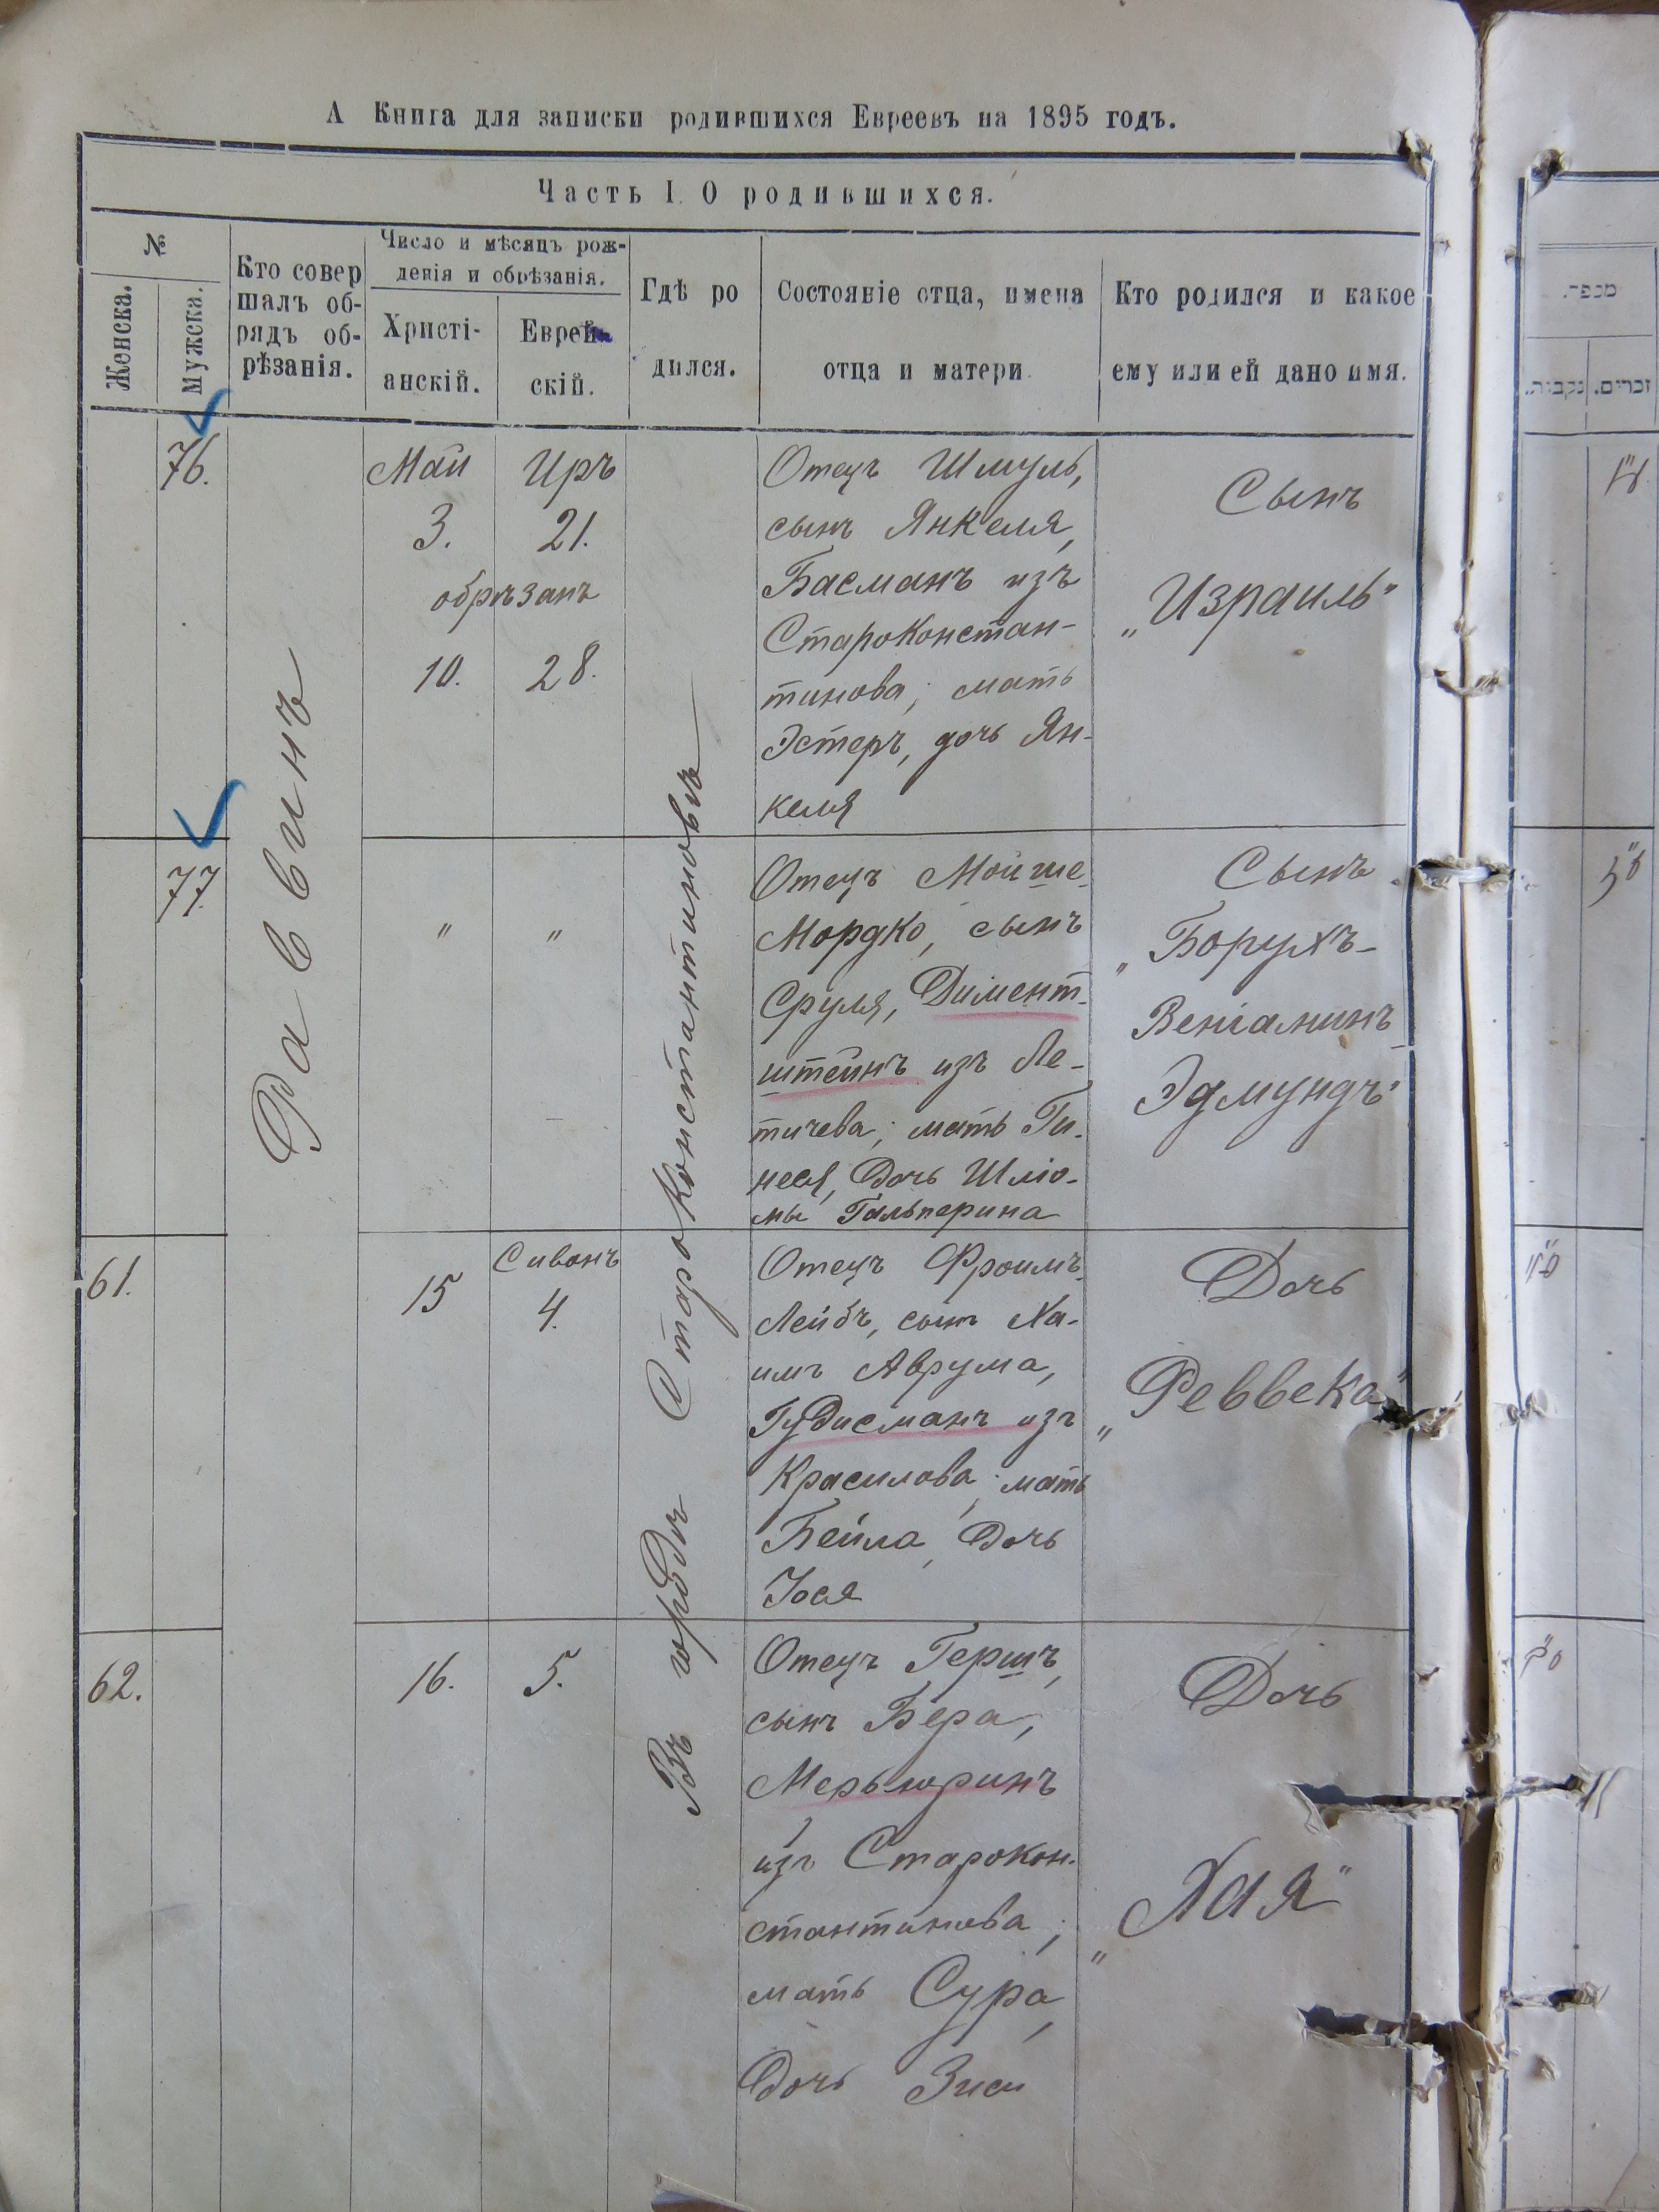 А Книга для записки родившихся Евреевъ на 1895 годъ.
Часть I. О родившихся.
№
Женска.
Мужска.
Кто совер
шалъ об-
рядъ об-
рѣзанія.
Число и мѣсяцъ рож-
денія и обрѣзанія.
Христі-
анскій.
Еврей-
скій.
Гдѣ ро
дился.
Состояніе отца, имена
отца и матери
Кто родился и какое
ему или ей дано имя.
Раввинъ
Въ городѣ Староконстантиновѣ
76.
Май
3.
Иръ
21.
обрѣзанъ
10.
28.
Отецъ Шмуль,
сынъ Янкеля,
Басманъ изъ
Староконстан-
тинова; мать
Эстеръ, дочь Ян-
келя
Сынъ
„Израиль"
77.
"
"
Отецъ Мойше-
Мордко, сынъ
Сруля, Димент-
штейнъ изъ Ле-
тичева; мать Ги-
неся, Дочь Шлио-
мы Гальперина
Сынъ
„Борухъ-
Веніаминъ-
Эдмундъ"
61.
15
Сивонъ
4.
Отецъ Фроимъ-
Лейбъ, сынъ Ха-
имъ Аврума,
Гудисманъ изъ
Красилова; мать
Бейла, Дочь
Иося
Дочь
„Реввека"
62.
16.
5.
Отецъ Гершъ,
сынъ Бера,
изъ Старокон-
стантинова;
мать Сура,
Дочь Зиси
Дочь
„Хая"
מספר.
נקבות.
זכרים.